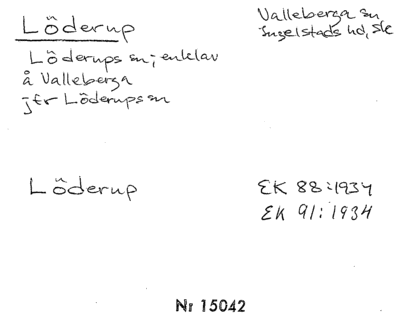 Löderup
Valleberga sn,
Ingelstads hd, Sk
Löderups sn; enklav
å Valleberga
jfr Löderups sn
Löderup
EK 88:1934
EK 91:1934
Nr 15042